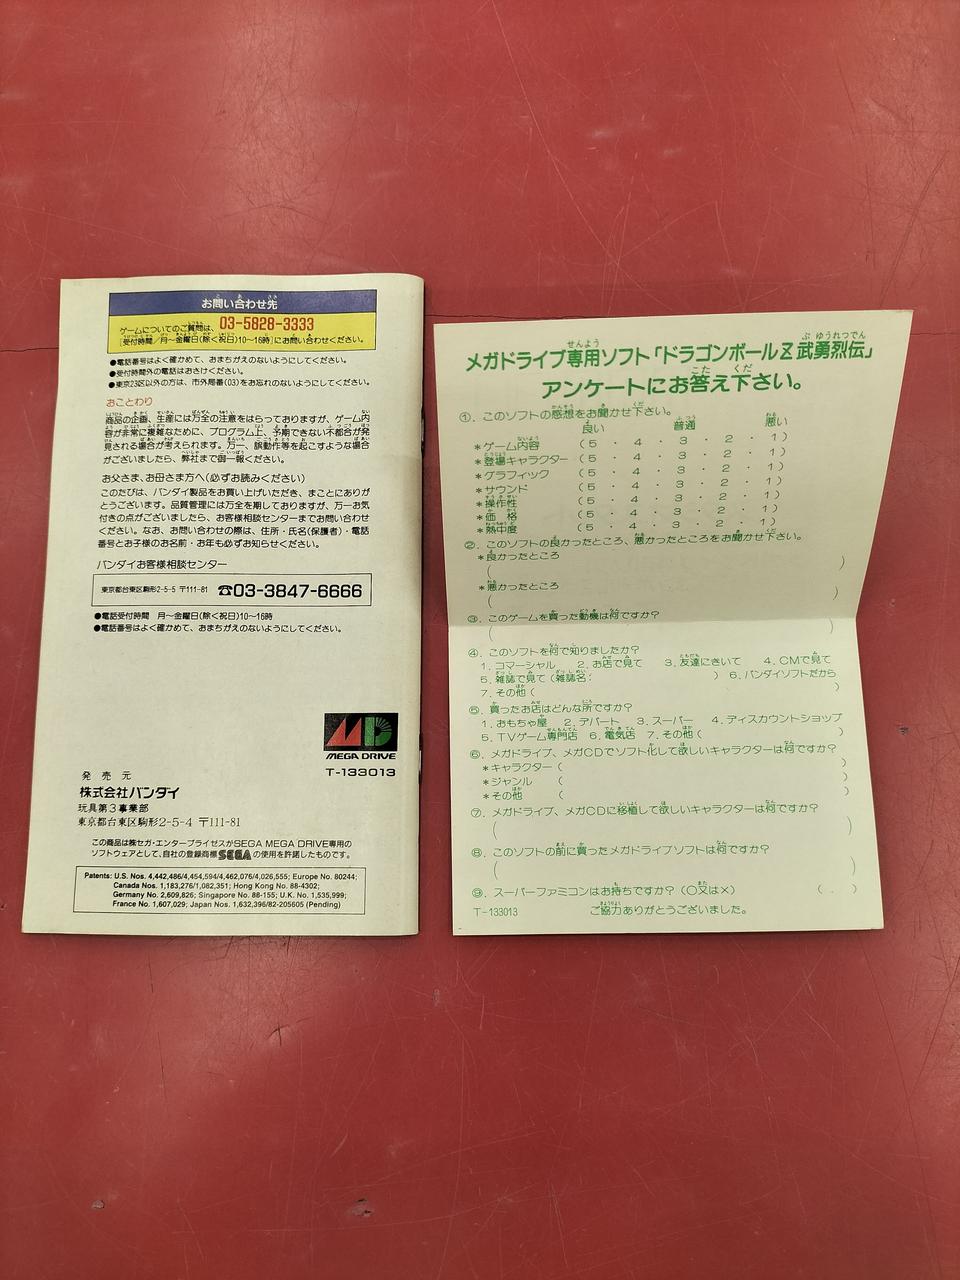 お問い合わせ先
ゲームについてのご質問は、03-5828-3333
[受付時間/月〜金曜日(除く祝日)10〜16時]にお問い合わせください。
●電話番号はよく確かめて、おまちがえのないようにしてください。
●受付時間外の電話はおさけください。
●東京23区以外の方は、市外局番(03)をお忘れのないようにしてください。
おことわり
商品の企画、生産には万全の注意をはらっておりますが、ゲーム内
容が非常に複雑なために、プログラム上、予期できない不都合が発
見される場合が考えられます。万一、誤動作等を起こすような場合
がございましたら、弊社まで御一報ください。
お父さま、お母さま方へ(必ずお読みください)
このたびは、バンダイ製品をお買い上げいただき、まことにありが
とうございます。品質管理には万全を期しておりますが、万一お気
付きの点がございましたら、お客様相談センターまでお問い合わせ
ください。なお、お問い合わせの際は、住所・氏名(保護者)・電話
番号とお子様のお名前・お年も必ずお知らせください。
バンダイお客様相談センター
東京都台東区駒形2-5-5 〒111-81 ☎03-3847-6666
●電話受付時間 月〜金曜日(除く祝日)10〜16時
●電話番号はよく確かめて、おまちがえのないようにしてください。
MD
MEGA DRIVE
T-133013
発売元
株式会社バンダイ
玩具第3事業部
東京都台東区駒形2-5-4 〒111-81
この商品は㈱セガ・エンタープライゼスがSEGA MEGA DRIVE専用の
ソフトウェアとして、自社の登録商標SEGAの使用を許諾したものです。
Patents: U.S. Nos. 4,442,486/4,454,594/4,462,076/4,026,555; Europe No. 80244;
Canada Nos. 1,183,276/1,082,351; Hong Kong No. 88-4302;
Germany No. 2,609,826; Singapore No. 88-155; U.K. No. 1,535,999;
France No. 1,607,029; Japan Nos. 1,632,396/82-205605 (Pending)
メガドライブ専用ソフト「ドラゴンボールZ 武勇烈伝」
アンケートにお答え下さい。
①. このソフトの感想をお聞かせ下さい。
良い 普通 悪い
*ゲーム内容 (5・4・3・2・1)
*登場キャラクター (5・4・3・2・1)
*グラフィック (5・4・3・2・1)
*サウンド (5・4・3・2・1)
*操作性 (5・4・3・2・1)
*価格 (5・4・3・2・1)
*熱中度 (5・4・3・2・1)
②. このソフトの良かったところ、悪かったところをお聞かせ下さい。
*良かったところ
( )
*悪かったところ
( )
③. このゲームを買った動機は何ですか?
( )
④. このソフトを何で知りましたか?
1. コマーシャル 2. お店で見て 3. 友達にきいて 4. CMで見て
5. 雑誌で見て (雑誌名: ) 6. バンダイソフトだから
7. その他 ( )
⑤. 買ったお店はどんな所ですか?
1. おもちゃ屋 2. デパート 3. スーパー 4. ディスカウントショップ
5. TVゲーム専門店 6. 電気店 7. その他 ( )
⑥. メガドライブ、メガCDでソフト化して欲しいキャラクターは何ですか?
*キャラクター ( )
*ジャンル ( )
*その他 ( )
⑦. メガドライブ、メガCDに移植して欲しいキャラクターは何ですか?
( )
⑧. このソフトの前に買ったメガドライブソフトは何ですか?
( )
⑨. スーパーファミコンはお持ちですか? (○又は×) ( . )
T-133013 ご協力ありがとうございました。